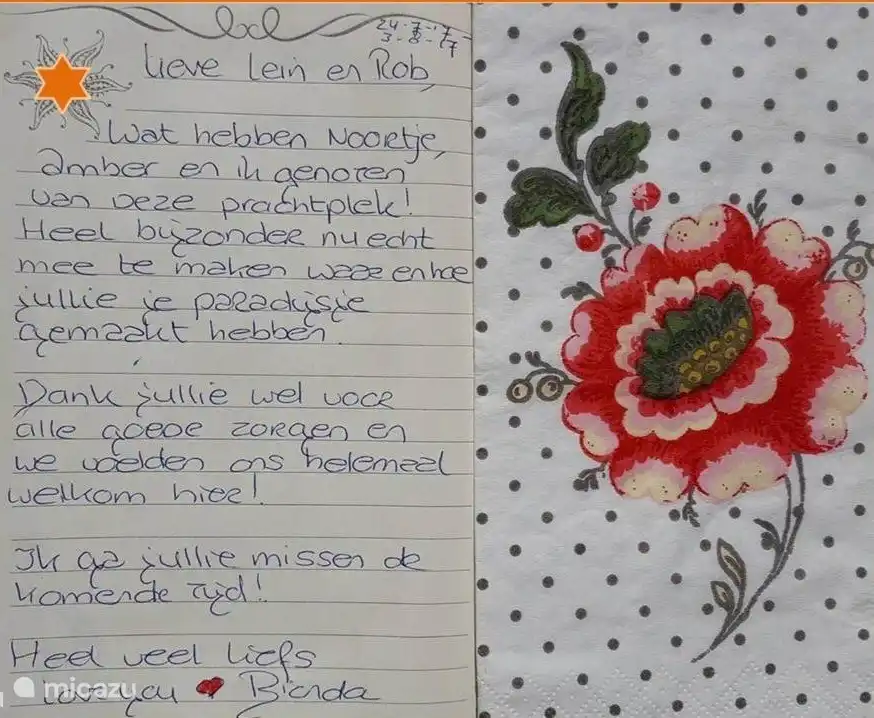 24-7-'17-
3-8-'17
Lieve Lein en Rob,
Wat hebben Noortje,
Amber en ik genoten
van deze prachtplek!
Heel bijzonder nu echt
mee te maken waar en hoe
jullie je paradijsje
gemaakt hebben.
Dank jullie wel voor
alle goede zorgen en
we voelden ons helemaal
welkom hier!
Ik ga jullie missen de
komende tijd!
Heel veel liefs
love you ❤ Bienda
micazu